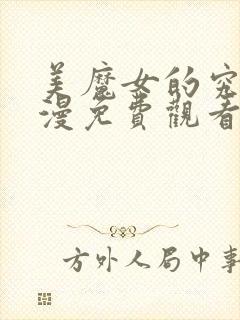 美魔女的究
漫免費觀看
方外人局中事